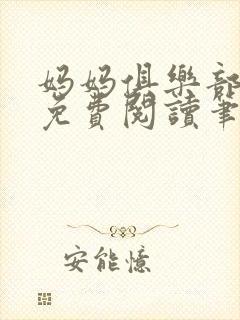 妈妈俱樂部
免費閱讀筆
安能憶